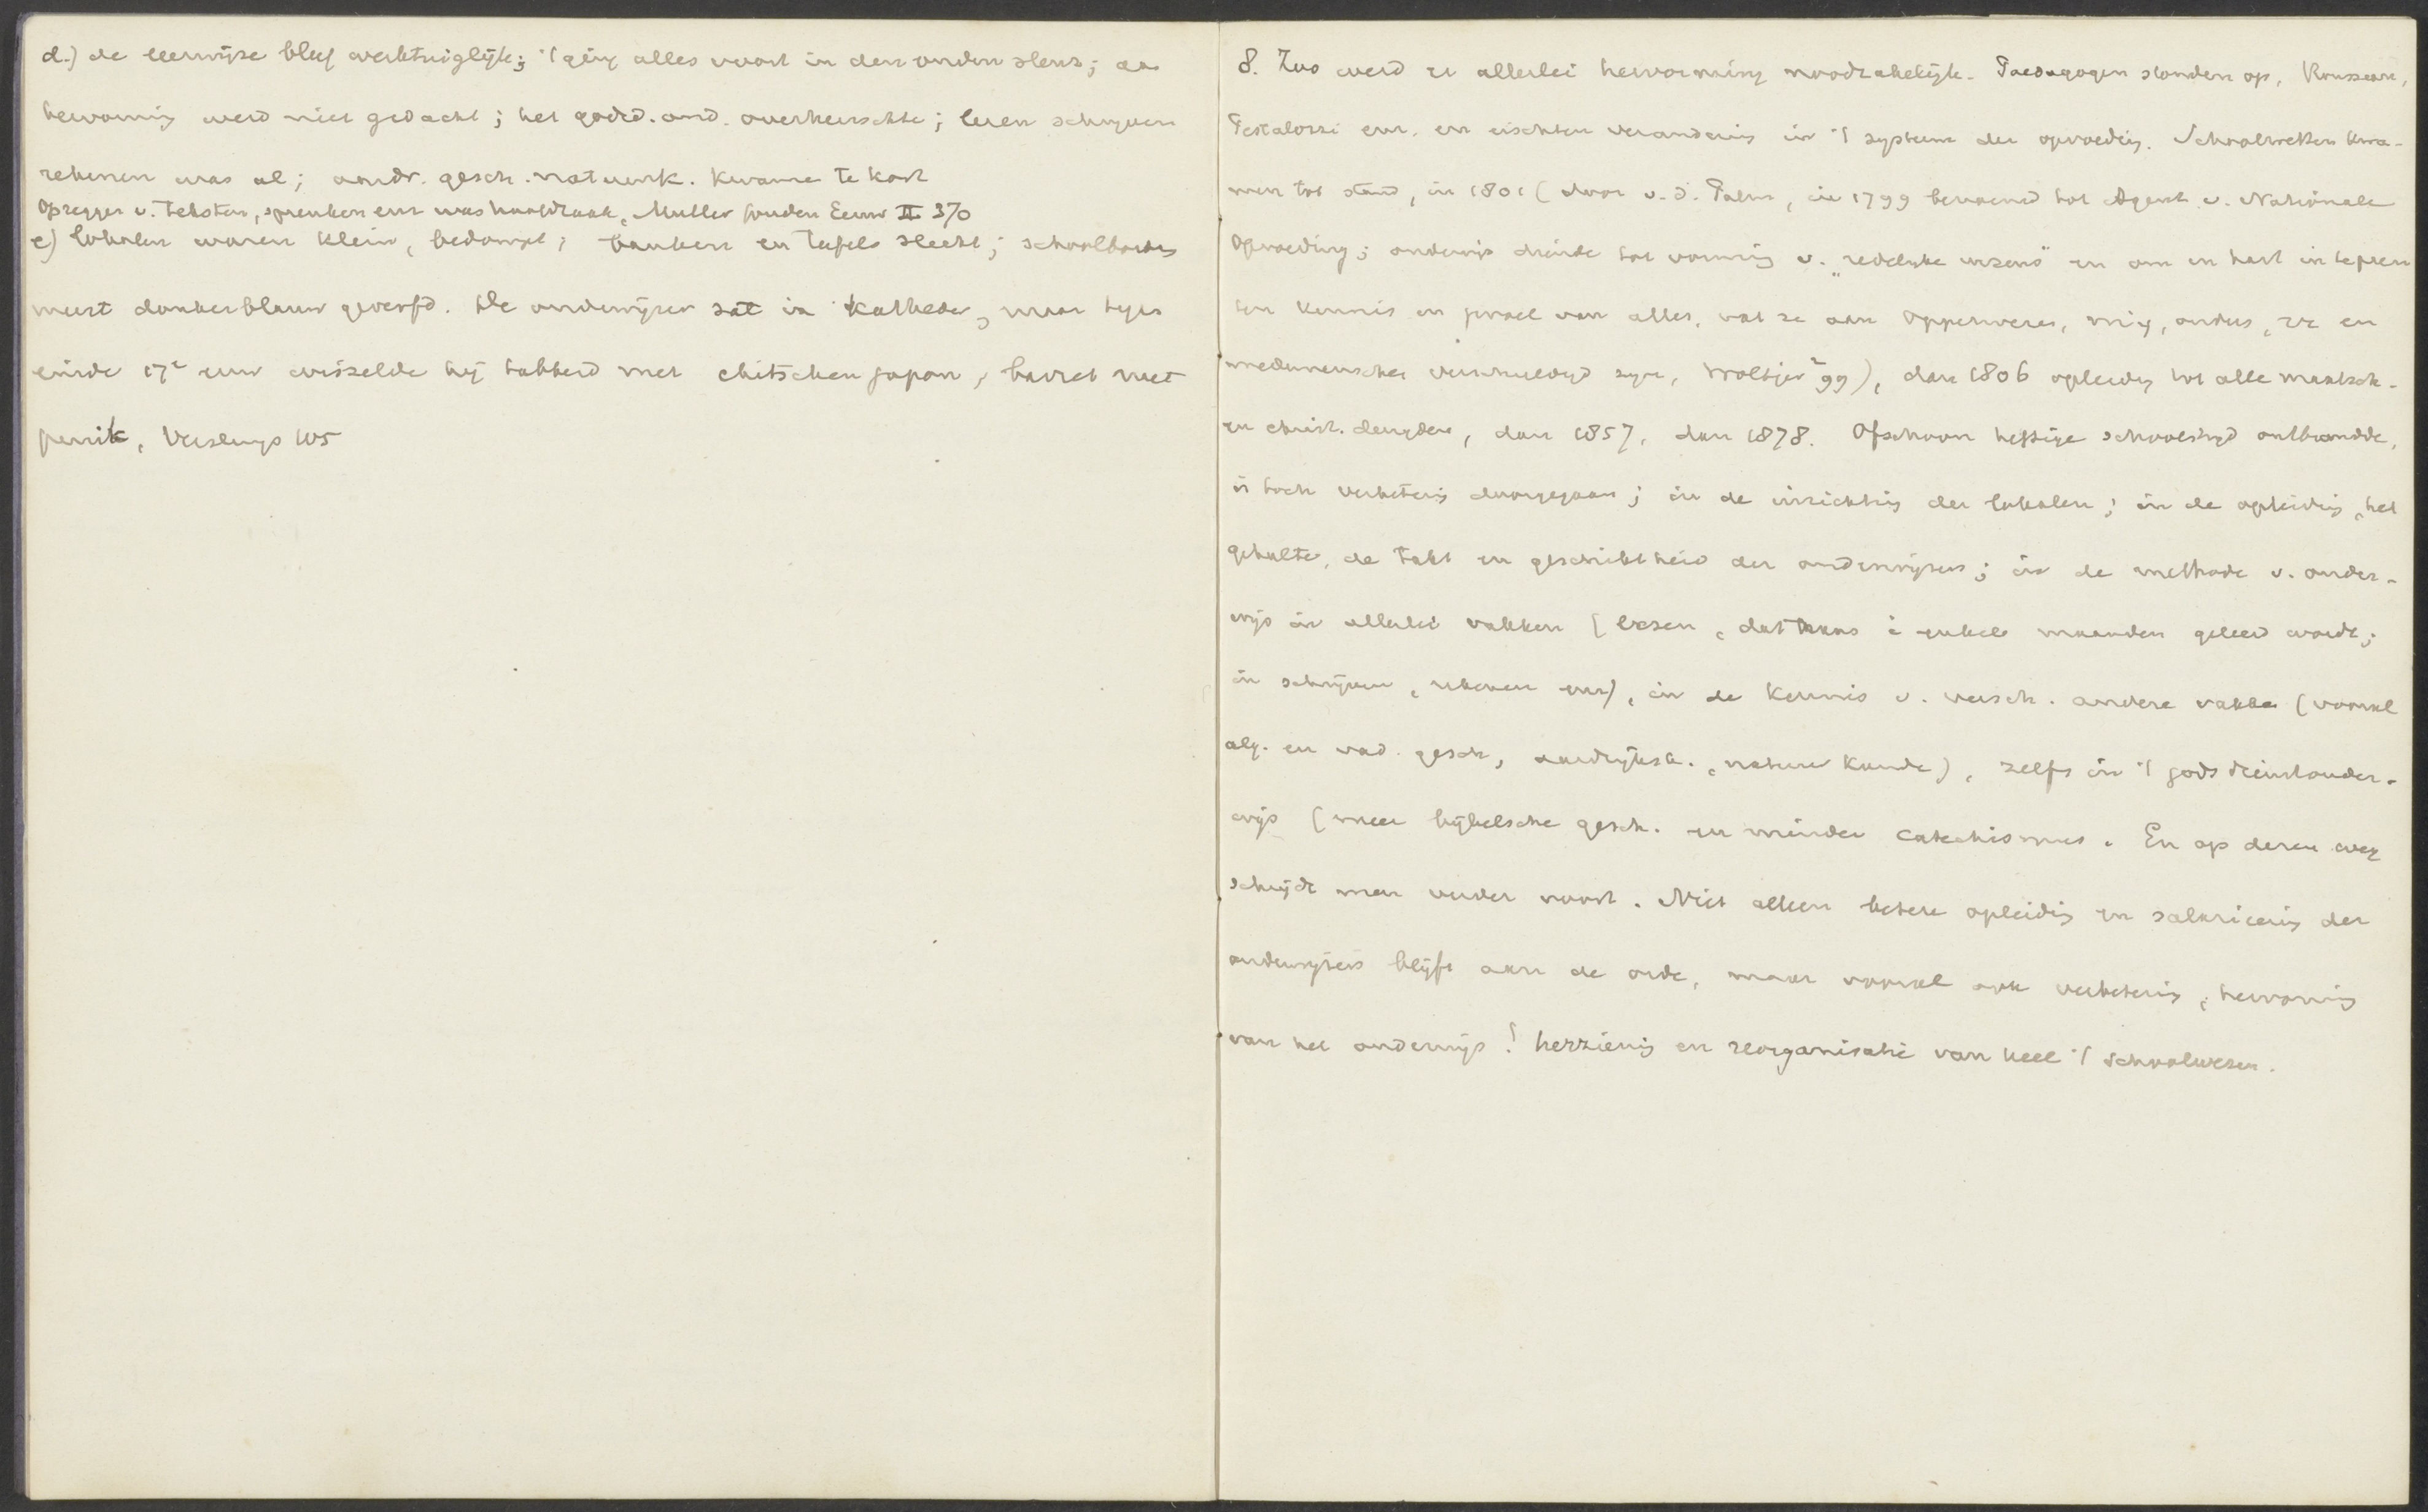 d.) de leerwijze bleef werktuiglijk; 't ging alles voort in den ouden slenr; aan
hervorming werd niet gedacht; het godsd. ond. overheerschte; lezen schrijven
rekenen was al; aardr. gesch. natuurk. kwamen te kort
opzeggen v. teksten, spreuken enz was hoofdzaak, Muller Gouden Eeuw II 370
e) lokalen waren klein, bedompt; banken en tafels slecht; schoolborden
meest donkerblauw geverfd. De onderwijzer zat in katheder, maar tegen
einde 17e eeuw wisselde hij tabberd met chitschen japon, baret met
pruik, Versluys 105
8. Zoo werd er allerlei hervorming noodzakelijk. Paedagogen stonden op, Rousseau,
Pestalozzi enz. en eischten verandering in 't systeem der opvoeding. Schoolwetten kwa-
men tot stand, in 1801 (door v. d. Palm, in 1799 benoemd tot Agent v. Nationale
Opvoeding; onderwijs diende tot vorming v. "redelijke wezens" en om in hart in te pren
ten kennis en gevoel van alles, wat ze aan Opperwezen, mij, ouders, ze en
medemenschen verschuldigd zijn, Woltjer 2 99), dan 1806 opleiding tot alle maatsch.
en christ. deugden, dan 1857, dan 1878. Ofschoon heftige schoolstrijd ontbrandde,
is toch verbetering doorgegaan; in de inrichting der lokalen; in de opleiding, het
gehalte, de takt en geschiktheid der onderwijzers; in de methode v. onder-
wijs in allerlei vakken (lezen, dat thans i enkele maanden geleerd wordt;
in schrijven, rekenen enz), in de kennis v. versch. andere vakken (vooral
alg. en vad. gesch, aardrijksk., natuurkunde), zelfs in 't godsdienstonder-
wijs (meer bijbelsche gesch. en minder catechismus. En op dezen weg
schrijdt men verder voort. Niet alleen betere opleiding en salarieering der
onderwijzers blijft aan de orde, maar vooral ook verbetering, hervorming
van het onderwijs! herziening en reorganisatie van heel 't schoolwezen.